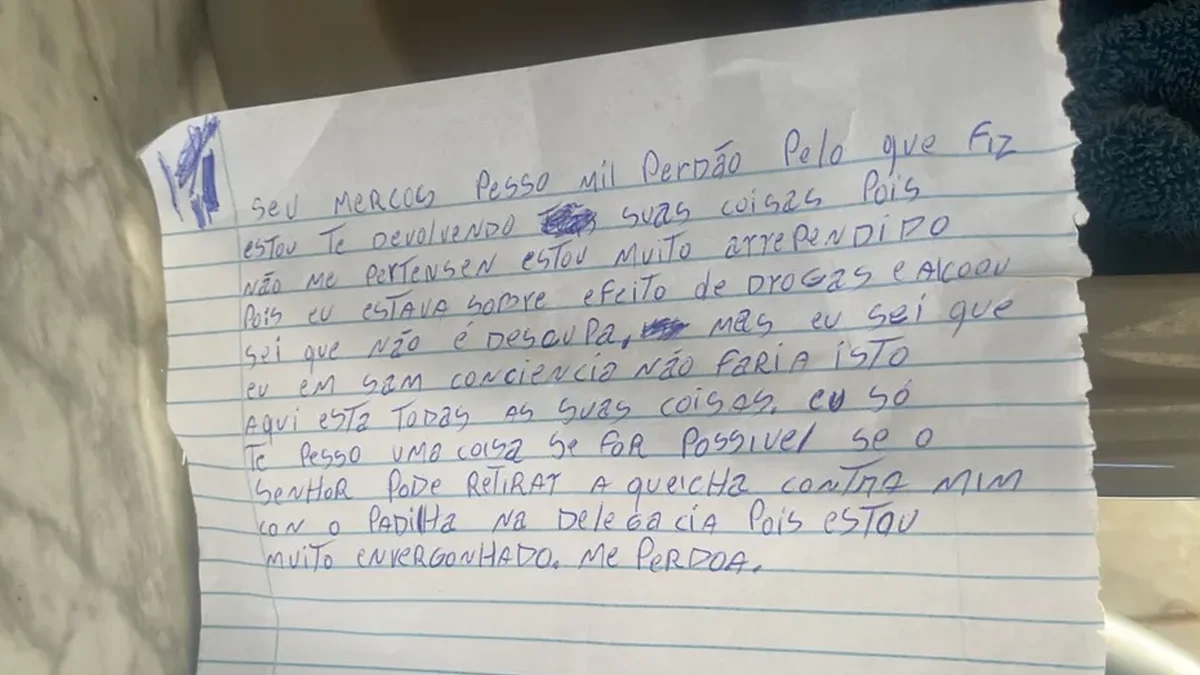 SEU MERCOS PESSO MIL PERDÃO PELO QUE FIZ
ESTOU TE DEVOLVENDO SUAS COISAS POIS
NÃO ME PERTENSEN ESTOU MUITO ARREPENDIDO
POIS EU ESTAVA SOBRE EFEITO DE DROGAS E ALCOOU
SEI QUE NÃO É DESCUPA, MAS EU SEI QUE
EU EM SAM CONCIENCIA NÃO FARIA ISTO
AQUI ESTA TODAS AS SUAS COISAS. EU SÓ
TE PESSO UMA COISA SE FOR POSSIVEL SE O
SENHOR PODE RETIRAR A QUEICHA CONTRA MIM
CON O PADILHA NA DELEGACIA POIS ESTOU
MUITO ENVERGONHADO. ME PERDOA.